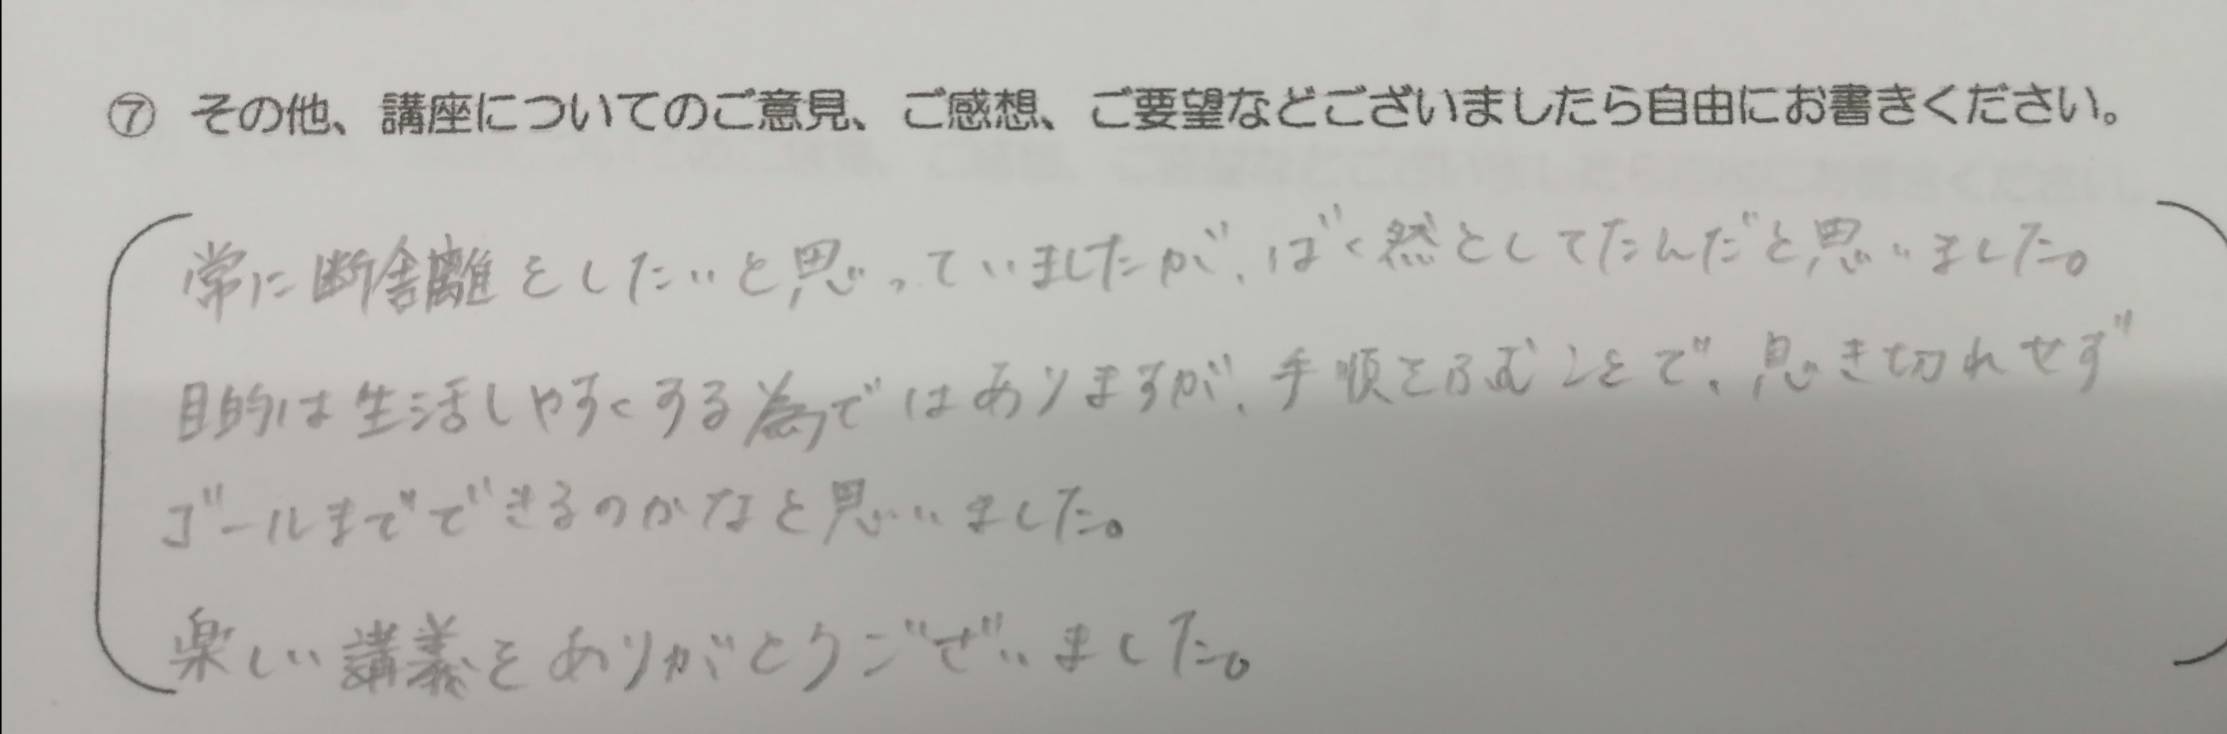 ⑦ その他、講座についてのご意見、ご感想、ご要望などございましたら自由にお書きください。
常に断舎離をしたいと思っていましたが、ばく然としてたんだと思いました。
目的は生活しやすくする為ではありますが、手順をふむことで、息き切れせず
ゴールまでできるのかなと思いました。
楽しい講義をありがとうございました。